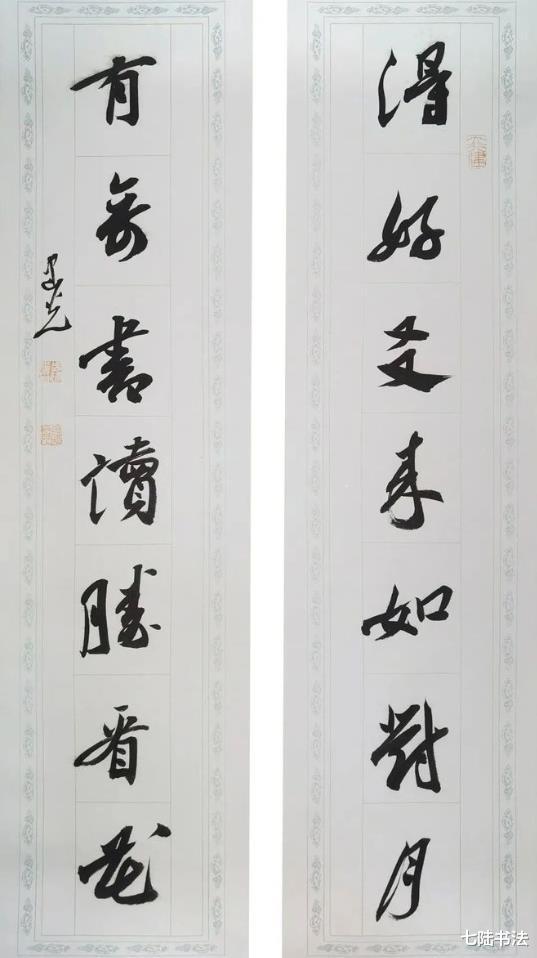 得好友来如對月
有奇書讀勝看花
七陆书法